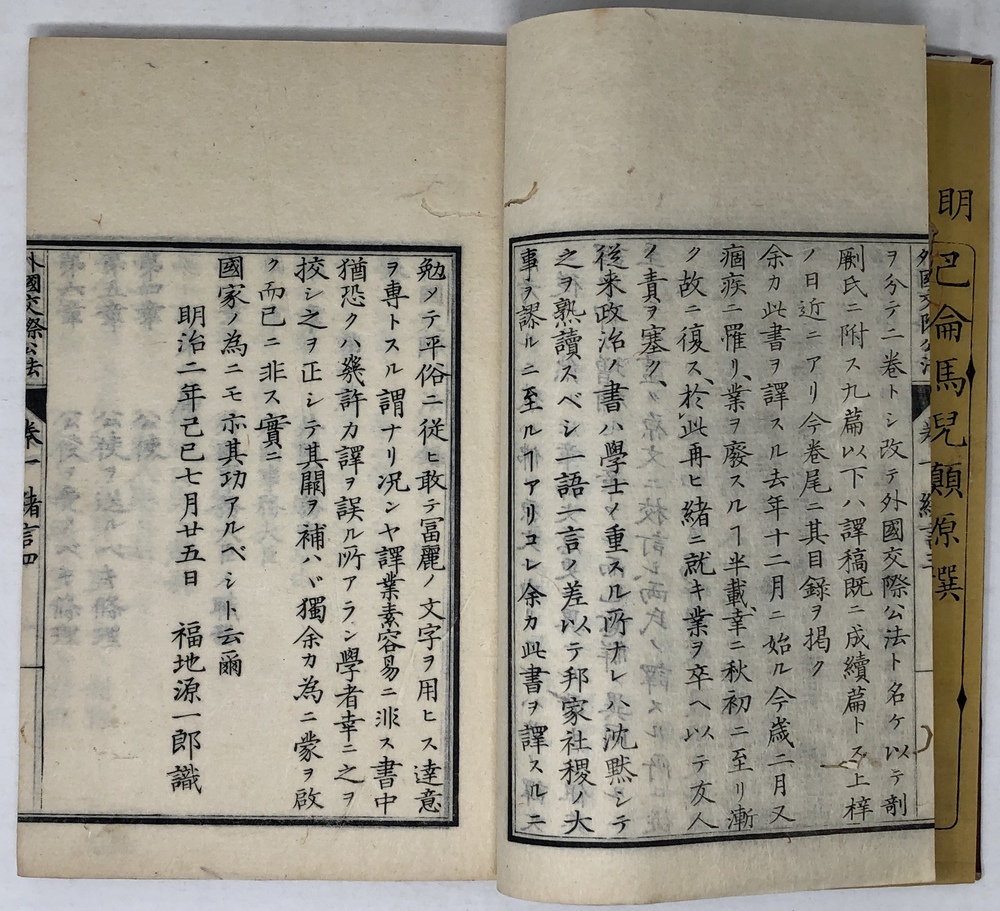 ヲ分テ二卷トシ改テ外國交際公法ト名ケ以テ剞
劂氏ニ附ス九篇以下ハ譯稿既ニ成續篇トス上梓
ノ日近ニアリ今卷尾ニ其目録ヲ掲ク
余カ此書ヲ譯スル去年十二月ニ始ル今歳二月又
痼疾ニ罹リ、業ヲ廢スルヿ半載、幸ニ秋初ニ至リ漸
ク故ニ復ス、於此再ヒ緒ニ就キ業ヲ卒ヘ以テ友人
ノ責ヲ塞ク、
従来政治ノ書ハ學士ノ重スル所ナレハ沈黙シテ
之ヲ熟讀スベシ一語一言ノ差以テ邦家社稷ノ大
事ヲ謬ルニ至ルヿアリコレ余カ此書ヲ譯スルニ
外國交際公法 卷一 緒言三
勉メテ平俗ニ従ヒ敢テ冨麗ノ文字ヲ用ヒス達意
ヲ専トスル謂ナリ况ンヤ譯業素容易ニ非ス書中
猶恐クハ幾許カ譯ヲ誤ル所アラン學者幸ニ之ヲ
挍シ之ヲ正シテ其闕ヲ補ハヾ獨余カ為ニ蒙ヲ啟
ク而已ニ非ス實ニ
國家ノ為ニモ亦其功アルベシト云爾
明治二年己巳七月廿五日 福地源一郎識
外國交際公法 卷一 緒言四
明
巴侖馬兒顛原撰